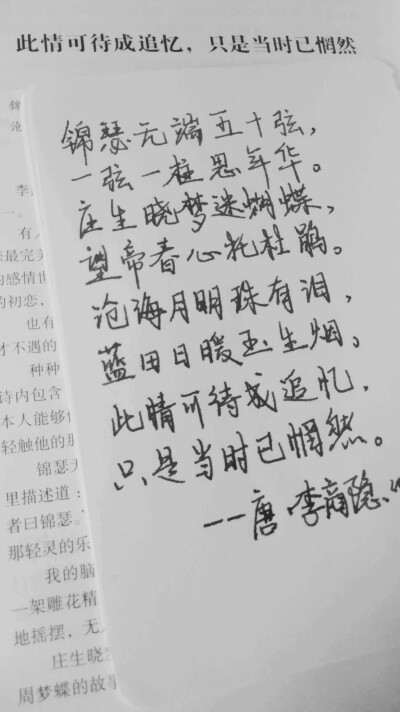 此情可待成追忆，只是当时已惘然
锦瑟无端五十弦，
一弦一柱思年华。
庄生晓梦迷蝴蝶，
望帝春心托杜鹃。
沧海月明珠有泪，
蓝田日暖玉生烟。
此情可待成追忆，
只是当时已惘然。
——唐·李商隐
锦
沧
李
一。
有人
最完美
的感情世
的初恋，
也有
才不遇的
种种
诗内包含
本人能够
轻触他的那
锦瑟无
里描述道：
者曰锦瑟。
那轻灵的乐
我的脑
一架雕花精
地摇摆，无
庄生晓
周梦蝶的故事